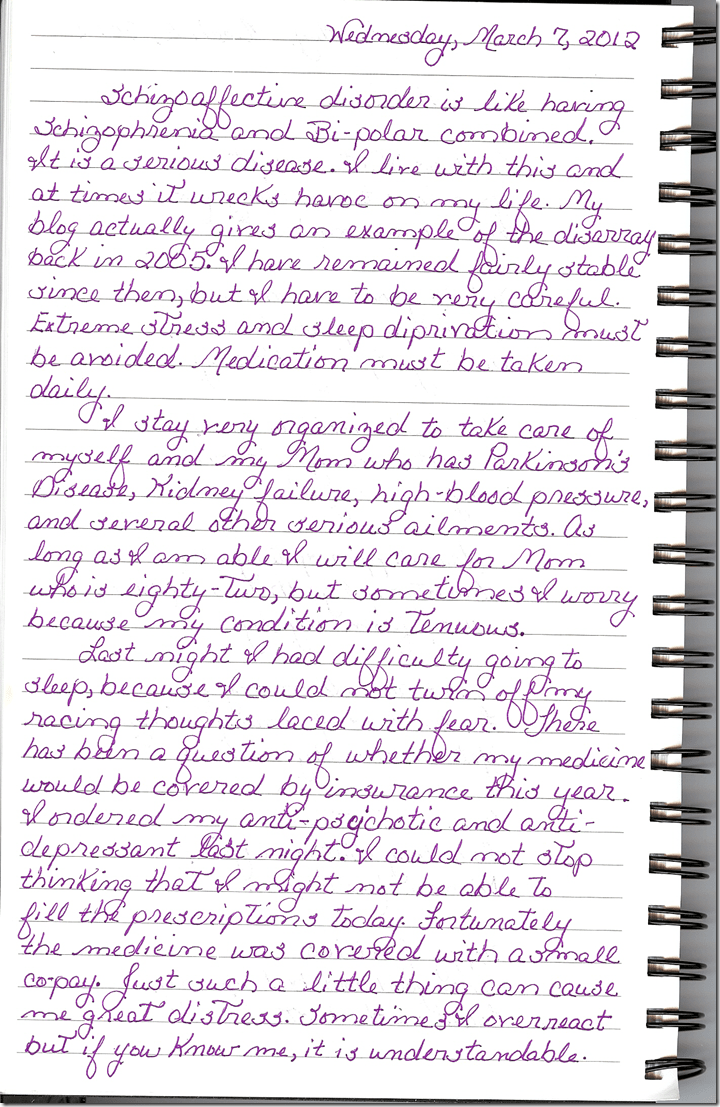 Wednesday, March 7, 2012
Schizoaffective disorder is like having
Schizophrenia and Bi-polar combined.
It is a serious disease. I live with this and
at times it wrecks havoc on my life. My
blog actually gives an example of the disarray
back in 2005. I have remained fairly stable
since then, but I have to be very careful.
Extreme stress and sleep diprivation must
be avoided. Medication must be taken
daily.
I stay very organized to take care of
myself and my Mom who has Parkinson's
Disease, Kidney failure, high-blood pressure,
and several other serious ailments. As
long as I am able I will care for Mom
who is eighty-two, but sometimes I worry
because my condition is tenuous.
Last night I had difficulty going to
sleep, because I could not turn off my
racing thoughts laced with fear. There
has been a question of whether my medicine
would be covered by insurance this year.
I ordered my anti-psychotic and anti-
depressant last night. I could not stop
thinking that I might not be able to
fill the prescriptions today. Fortunately
the medicine was covered with a small
co-pay. Just such a little thing can cause
me great distress. Sometimes I overreact
but if you know me, it is understandable.